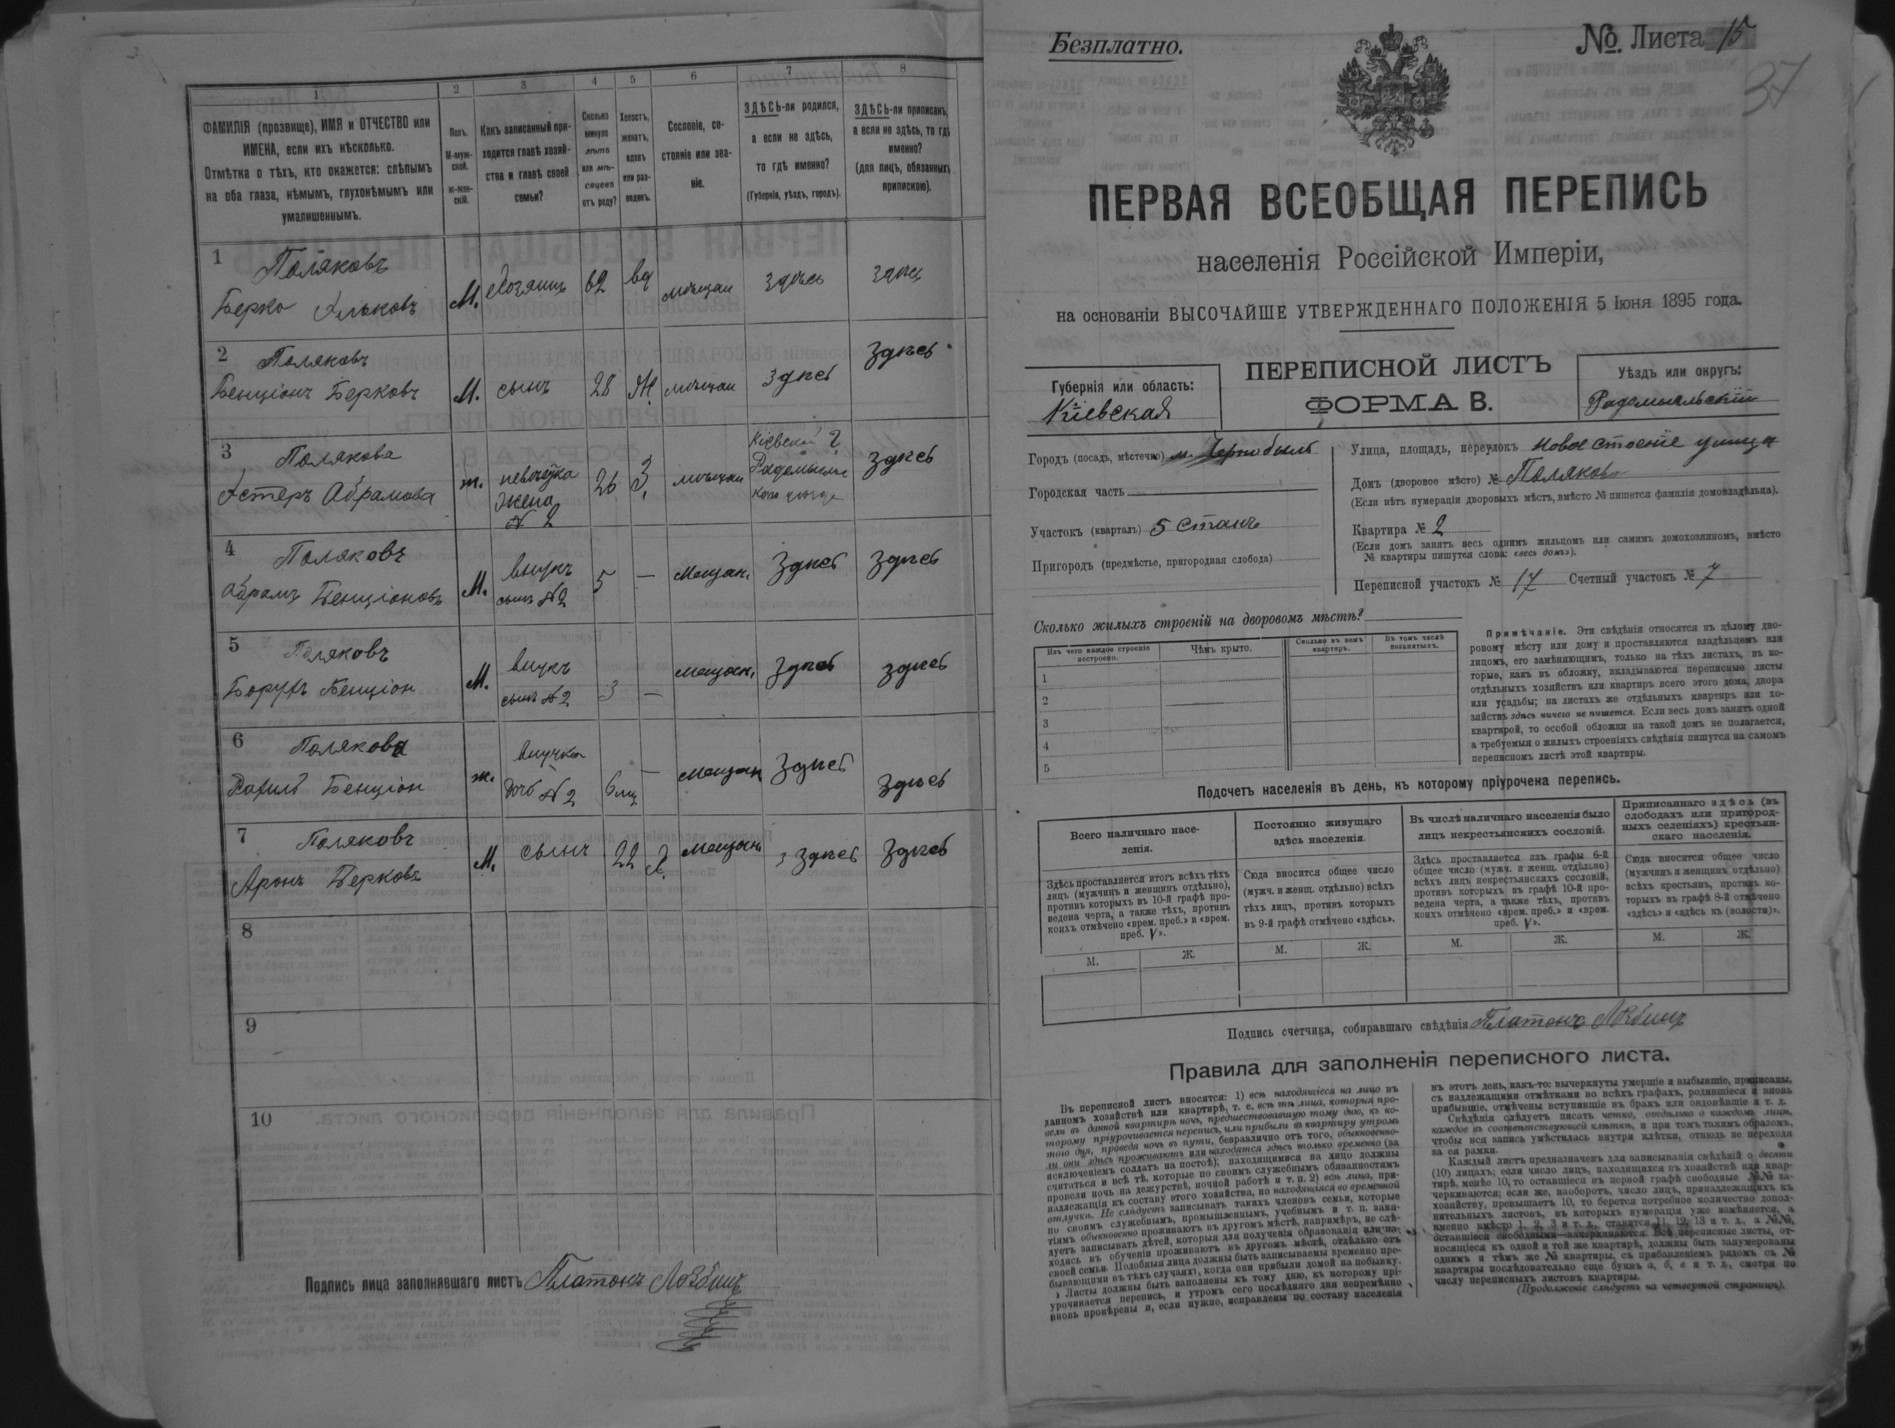 1
2
3
4
5
6
7
8
ФАМИЛІЯ (прозвище), ИМЯ и ОТЧЕСТВО или
ИМЕНА, если ихъ нѣсколько.
Отмѣтка о тѣхъ, кто окажется: слѣпымъ
на оба глаза, нѣмымъ, глухонѣмымъ или
умалишеннымъ.
Полъ.
М-муж-
ской.
Ж-жен-
скій.
Какъ записанный при-
ходится главѣ хозяй-
ства и главѣ своей
семьи?
Сколько
минуло
лѣтъ
или мѣ-
сяцевъ
отъ роду?
Холостъ,
женатъ,
вдовъ
или раз-
веденъ.
Сословіе, со-
стояніе или зва-
ніе.
ЗДѢСЬ-ли родился,
а если не здѣсь,
то гдѣ именно?
(Губернія, уѣздъ, городъ).
ЗДѢСЬ-ли приписанъ,
а если не здѣсь, то гдѣ
именно?
(для лицъ, обязанныхъ
припискою).
1
Поляковъ
Берко
М. хозяинъ 62 вд мѣщан здѣсь здѣсь
2
Поляковъ
Бенціонъ Берковъ М. сынъ 28 Ж мѣщан здѣсь здѣсь
3
Полякова
Эстеръ Абрамова ж. невѣстка
жена
№ 2
26 З. мѣщан Кіевской г
Радомысль
ского уѣзда
здѣсь
4
Поляковъ
Абрамъ Бенціоновъ М. внукъ
сынъ №2
5 — мещан. здѣсь здѣсь
5
Поляковъ
Борухъ Бенціон М. внукъ
сынъ №2
3 — мещан. здѣсь здѣсь
6
Полякова
Рахиль Бенціон ж. внучка
дочь №2
6 мц — мещан здѣсь здѣсь
7
Поляковъ
Аронъ Берковъ М. сынъ 22 Х. мещанъ здѣсь здѣсь
8
9
10
Подпись лица заполнявшаго листъ Платонъ
Безплатно.
№. Листа 15
37
ПЕРВАЯ ВСЕОБЩАЯ ПЕРЕПИСЬ
населенія Россійской Имперіи,
на основаніи ВЫСОЧАЙШЕ УТВЕРЖДЕННАГО ПОЛОЖЕНІЯ 5 Іюня 1895 года.
Губернія или область:
Кіевская
ПЕРЕПИСНОЙ ЛИСТЪ
ФОРМА В.
Уѣздъ или округъ:
Радомысльскій
Городъ (посадъ, мѣстечко) м. Чернобыль
Городская часть
Участокъ (кварталъ) 5 станъ
Пригородъ (предмѣстье, пригородная слобода)
Улица, площадь, переулокъ Новое строеніе улица
Домъ (дворовое мѣсто) № Поляковъ
(Если нѣтъ нумераціи дворовыхъ мѣстъ, вмѣсто № пишется фамилія домовладѣльца).
Квартира № 2
(Если домъ занятъ весь однимъ жильцомъ или самимъ домохозяиномъ, вмѣсто
№ квартиры пишутся слова: «весь домъ»).
Переписной участокъ № 17 Счетный участокъ № 7
Сколько жилыхъ строеній на дворовомъ мѣстѣ?
Изъ чего каждое строеніе
построено.
Чѣмъ крыто.
Сколько въ немъ
квартиръ.
Въ томъ числѣ
незанятыхъ.
1
2
3
4
5
Примѣчаніе. Эти свѣдѣнія относятся къ цѣлому дво-
ровому мѣсту или дому и проставляются владѣльцемъ или
лицомъ, его замѣняющимъ, только на тѣхъ листахъ, въ ко-
торые, какъ въ обложку, вкладываются переписные листы
отдѣльныхъ хозяйствъ или квартиръ всего этого дома, двора
или усадьбы; на листахъ же отдѣльныхъ квартиръ или хо-
зяйствъ здѣсь ничего не пишется. Если весь домъ занятъ одной
квартирой, то особой обложки на такой домъ не полагается,
а требуемыя о жилыхъ строеніяхъ свѣдѣнія пишутся на самомъ
переписномъ листѣ этой квартиры.
Подсчетъ населенія въ день, къ которому пріурочена перепись.
Всего наличнаго насе-
ленія.
Постоянно живущаго
здѣсь населенія.
Въ числѣ наличнаго населенія было
лицъ некрестьянскихъ сословій.
Приписаннаго здѣсь (въ
слободахъ или пригород-
ныхъ селеніяхъ) крестьян-
скаго населенія.
Здѣсь проставляется итогъ всѣхъ тѣхъ
лицъ (мужчинъ и женщинъ отдѣльно),
противъ которыхъ въ 10-й графѣ про-
ведена черта, а также тѣхъ, противъ
коихъ отмѣчено «врем. преб.» и «врем.
преб. V».
Сюда вносится общее число
(мужч. и женщ. отдѣльно) всѣхъ
тѣхъ лицъ, противъ которыхъ
въ 9-й графѣ отмѣчено «здѣсь».
Здѣсь проставляется изъ графы 6-й
общее число (мужч. и женщ. отдѣльно)
всѣхъ лицъ некрестьянскихъ сословій,
противъ которыхъ въ графѣ 10-й про-
ведена черта, а также тѣхъ, противъ
коихъ отмѣчено «врем. преб.» и «врем.
преб. V».
Сюда вносится общее число
(мужчинъ и женщинъ отдѣльно)
всѣхъ крестьянъ, противъ ко-
торыхъ въ графѣ 8-й отмѣчено
«здѣсь» и «здѣсь къ (волости)».
М. Ж. М. Ж. М. Ж. М. Ж.
Подпись счетчика, собиравшаго свѣдѣнія Платонъ
Правила для заполненія переписного листа.
Въ переписной листъ вносятся: 1) всѣ находящіеся на лицо въ
данномъ хозяйствѣ или квартирѣ, т. е. всѣ тѣ лица, которыя про-
вели въ данной квартирѣ ночь, предшествовавшую тому дню, къ ко-
торому пріурочивается перепись, или прибыли въ квартиру утромъ
того дня, проведя ночь въ пути, безразлично отъ того, обыкновенно-
ли они здѣсь проживаютъ или находятся здѣсь только временно (за
исключеніемъ солдатъ на постоѣ); находящимися на лицо должны
считаться и всѣ тѣ, которые по своимъ служебнымъ обязанностямъ
провели ночь на дежурствѣ, ночной работѣ и т. п. 2) всѣ лица, при-
надлежащія къ составу этого хозяйства, но находящіяся во временной
отлучкѣ. Не слѣдуетъ записывать такихъ членовъ семьи, которые
по своимъ служебнымъ, промышленнымъ, учебнымъ и т. п. заня-
тіямъ обыкновенно проживаютъ въ другомъ мѣстѣ, напримѣръ, не слѣ-
дуетъ записывать дѣтей, которыя для полученія образованія или на-
ходясь въ обученіи проживаютъ въ другомъ мѣстѣ, отдѣльно отъ
своей семьи. Подобныя лица должны быть записываемы временно пре-
бывающими въ тѣхъ случаяхъ, когда они прибыли домой на побывку.
Листы должны быть заполнены къ тому дню, къ которому прі-
урочивается перепись, и утромъ сего послѣдняго дня непремѣнно
вновь провѣрены и, если нужно, исправлены по составу населенія
въ этотъ день, какъ-то: вычеркнуты умершіе и выбывшіе, приписаны,
съ надлежащими отмѣтками во всѣхъ графахъ, родившіеся и вновь
прибывшіе, отмѣчены вступившіе въ бракъ или овдовѣвшіе и т. д.
Свѣдѣнія слѣдуетъ писать четко, отдѣльно о каждомъ лицѣ,
каждое въ соотвѣтствующей клѣткѣ, и при томъ такимъ образомъ,
чтобы вся запись умѣстилась внутри клѣтки, отнюдь не переходя
за ея рамки.
Каждый листъ предназначенъ для записыванія свѣдѣній о десяти
(10) лицахъ; если число лицъ, находящихся въ хозяйствѣ или квар-
тирѣ, менѣе 10, то оставшіеся въ первой графѣ свободные №№ за-
черкиваются; если же, наоборотъ, число лицъ, принадлежащихъ къ
хозяйству, превышаетъ 10, то берется потребное количество допол-
нительныхъ листовъ, въ которыхъ нумерація уже измѣняется, а
именно вмѣсто 1, 2, 3 и т. д., ставятся 11, 12, 13 и т. д., а №№,
оставшіеся свободными—зачеркиваются. Всѣ переписные листы, от-
носящіеся къ одной и той же квартирѣ, должны быть занумерованы
однимъ и тѣмъ же № квартиры, съ прибавленіемъ рядомъ съ №
квартиры послѣдовательно еще буквъ а, б, в и т. д., смотря по
числу переписныхъ листовъ квартиры.
(Продолженіе слѣдуетъ на четвертой страницѣ).